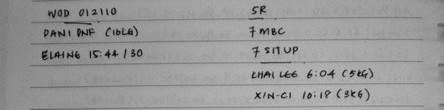 WOD 012110
DANI DNF (16KG)
ELAINE 15:44 / 30
5R
7 MBC
7 SIT UP
CHAI LEE 6:04 (5KG)
XIN-CI 10:18 (3KG)